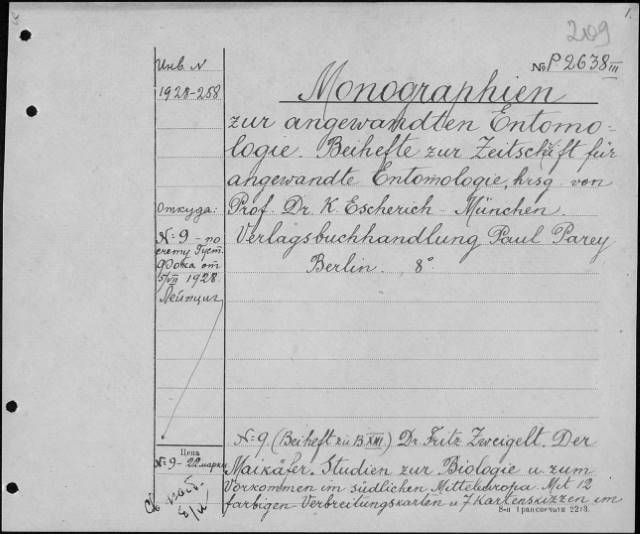 1.
209
№ P2638 III
Инв. N
1928-258
Monographien
zur angewandten Entomo-
logie. Beihefte zur Zeitschrift für
angewandte Entomologie, hrsg. von
Откуда:
Prof. Dr. K. Escherich - München.
№ 9 - по
счету Густ.
Фока от
5/VII 1928.
Лейпциг
Verlagsbuchhandlung Paul Parey
Berlin. 8°.
Цена
№ 9 - 22 марки
№ 9. (Beiheft zu B XIII.) Dr. Fritz Zweigelt. Der
Maikäfer. Studien zur Biologie u. zum
Vorkommen im südlichen Mitteleuropa. Mit 12
farbigen Verbreitungskarten u. 7 Kartenskizzen im
8-я Транспечати 2213.